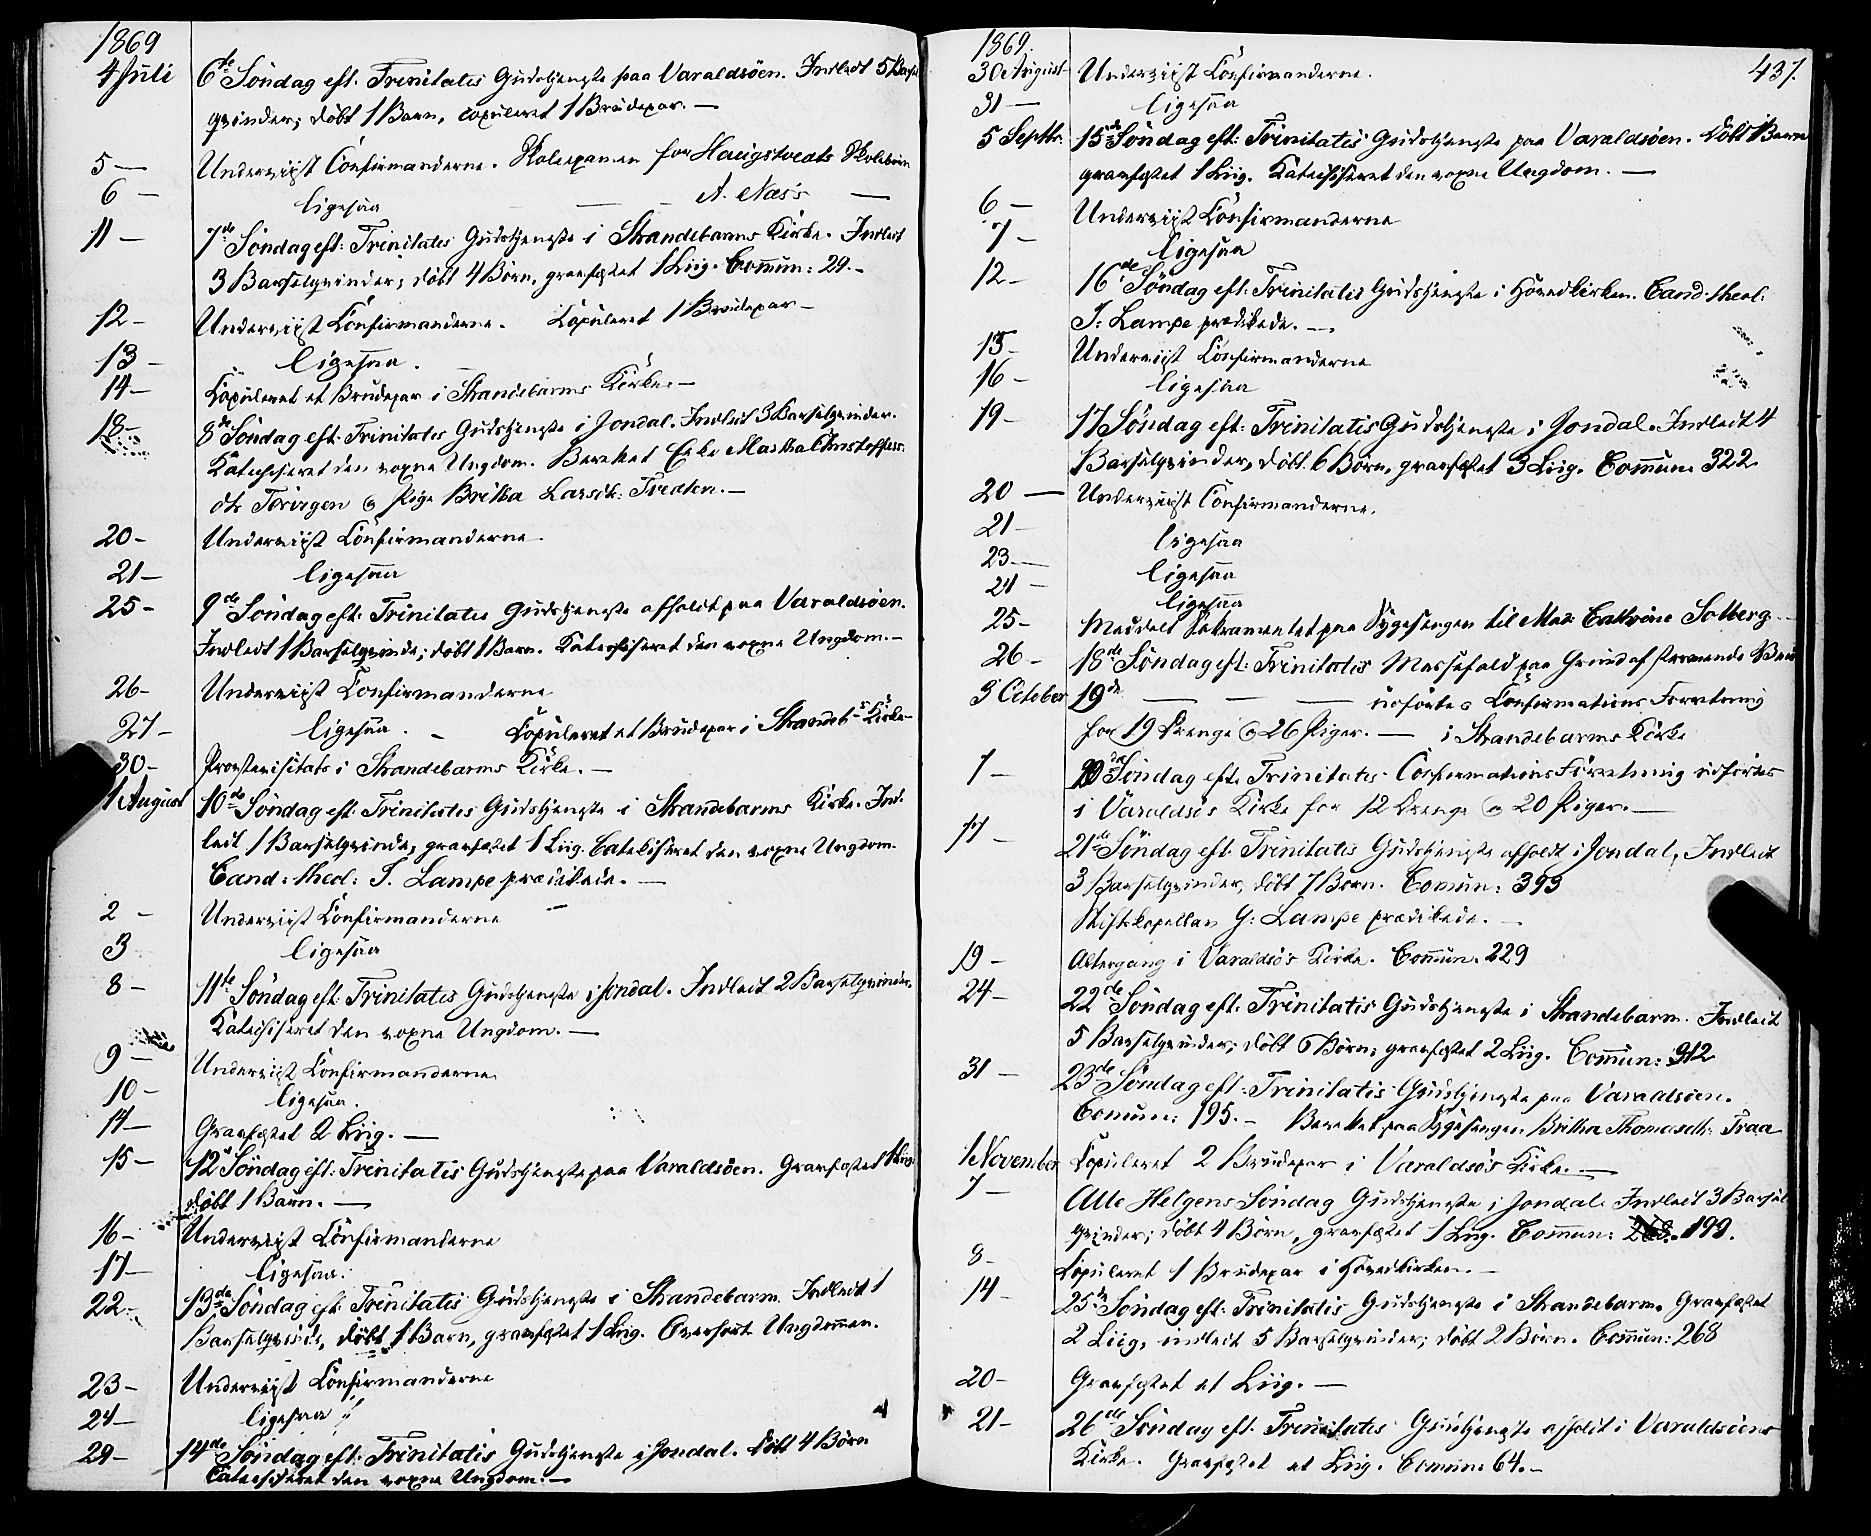 1869
4 Juli 6te Søndag eft. Trinitatis Gudstjeneste paa Varaldsöen. Indledt 5 Barsel
qvinder; döbt 1 Barn, copuleret 1 Brudepar. —
5 — Underviist Confirmanderne. Skoleexamen for Haugstvedts Skolebörn
6 — ligesaa — — A. Næs's —
11 — 7de Söndag eft: Trinitatis Gudstjeneste i Strandebarms Kirke. Indledt
3 Barselqvinder; döbt 4 Börn, graefæstet 1 Liig. Com̄un: 29. —
12 — Underviist Confirmanderne. Copuleret 1 Brudepar —
13 — ligesaa. —
14 — Copuleret et Brudepar i Strandebarms Kirke. —
18 — 8de Söndag eft. Trinitatis Gudstjeneste i Jondal. Indledt 3 Barselqvinder.
Katechiseret den voxne Ungdom. Berettet Enke Martha Christoffers
dtr Torvigen & Pige Britha Larsdt: Traden. —
20 — Underviist Confirmanderne
21 — ligesaa
25 — 9de Söndag eft: Trinitatis Gudstjeneste afholdt paa Varaldsöen.
Indledt 1 Barselqvinde; döbt 1 Barn. Katechiseret den voxne Ungdom. —
26 — Underviist Confirmanderne
27 — ligesaa. — Copuleret et Brudepar i Strandeb:s Kirke —
30 — Provstevisitats i Strandebarms Kirke. —
1 August 10de Söndag eft: Trinitatis Gudstjeneste i Strandebarms Kirke. Ind-
ledt 1 Barselqvinde, graefæstet 1 Liig. Catekiseret den voxne Ungdom.
Cand: theol: J. Lampe prædikede. —
2 — Underviist Confirmanderne —
3 ligesaa
8 — 11te Söndag eft: Trinitatis Gudstjeneste i Jondal. Indledt 2 Barselqvinder.
Katechiseret den voxne Ungdom. —
9 — Underviist Confirmanderne
10 — ligesaa.
14 — Graefæstet 2 Liig. —
15 — 12te Söndag eft: Trinitatis Gudstjeneste paa Varaldsöen. Graefæstet 1 Liig
döbt 1 Barn. —
16 — Underviist Confirmanderne
17 — ligesaa.
22 — 13de Söndag eft. Trinitatis Gudstjeneste i Strandebarm. Indledt 1
Barselqvinde, döbt 1 Barn, graefæstet 1 Liig. Overhört Ungdommen.
23 — Underviist Confirmanderne
24 — ligesaa
29 — 14de Söndag eft: Trinitatis Gudstjeneste i Jondal. Döbt 4 Börn
Catechiseret den voxne Ungdom. —
1869. 437.
30 August Underviist Confirmanderne.
31 — ligesaa
5 Septbr. 15de Söndag eft: Trinitatis Gudstjeneste paa Varaldsöen. Döbt 1 Barn
graefæstet 1 Liig. Katechiseret den voxne Ungdom. —
6 — Underviist Confirmanderne
7 — ligesaa
12 — 16de Söndag eft: Trinitatis Gudstjeneste i Hovedkirken. Cand. theol:
J: Lampe prædikede. —
15 — Underviist Confirmanderne
16 — ligesaa
19 — 17 Söndag eft: Trinitatis Gudstjeneste i Jondal. Indledt 4
Barselqvinder, döbt 6 Börn, graefæstet 3 Liig. Com̄un: 322
20 — Underviist Confirmanderne.
21 — ligesaa
23 — ligesaa
24 — ligesaa
25 — Meddelt Sakramentet paa Sygesengen til Mad: Cathrine Solberg
26 — 18de Söndag eft: Trinitatis Messefald paa Grund af stormende Veir
3 October 19de — — — udfortes Confirmations Forretning
for 19 Drenge & 26 Piger. — i Strandebarms Kirke
7 — 20de Söndag eft. Trinitatis Confirmations Forretning udfortes
i Varaldsös Kirke for 12 Drenge & 20 Piger. —
17 — 21de Söndag eft Trinitatis Gudstjeneste afholdt i Jondal, Indledt
3 Barselqvinder, döbt 7 Börn. Com̄un: 393
Stiftskapellan G: Lampe prædikede. —
19 — Altergang i Varaldsös Kirke. Com̄un. 229
24 — 22de Söndag eft. Trinitatis Gudstjeneste i Strandebarm. Indledt
5 Barselqvinder; döbt 6 Börn; graefæstet 2 Liig. Com̄un: 312
31 — 23de Söndag eft: Trinitatis Gudstjeneste paa Varaldsöen.
Com̄un: 195. — Berettet paa Sygesengen Britha Thomasdtr: Traa
1 November Copuleret 2 Brudepar i Varaldsös Kirke. —
7 — Alle Helgens Söndag Gudstjeneste i Jondal. Indledt 3 Barsel
qvinder; döbt 4 Börn, graefæstet 1 Liig. Com̄un: 199.
8 — Copuleret 1 Brudepar i Hovedkirken. —
14 — 25de Söndag eft: Trinitatis Gudstjeneste i Strandebarm. Graefæstet
2 Liig, indledt 5 Barselqvinder; döbt 2 Börn. Com̄un: 268
20 — Graefæstet et Liig. —
21 — 26de Söndag eft. Trinitatis Gudstjeneste afholdt i Varaldsöens
Kirke. Graefæstet et Liig. Com̄un: 64. —